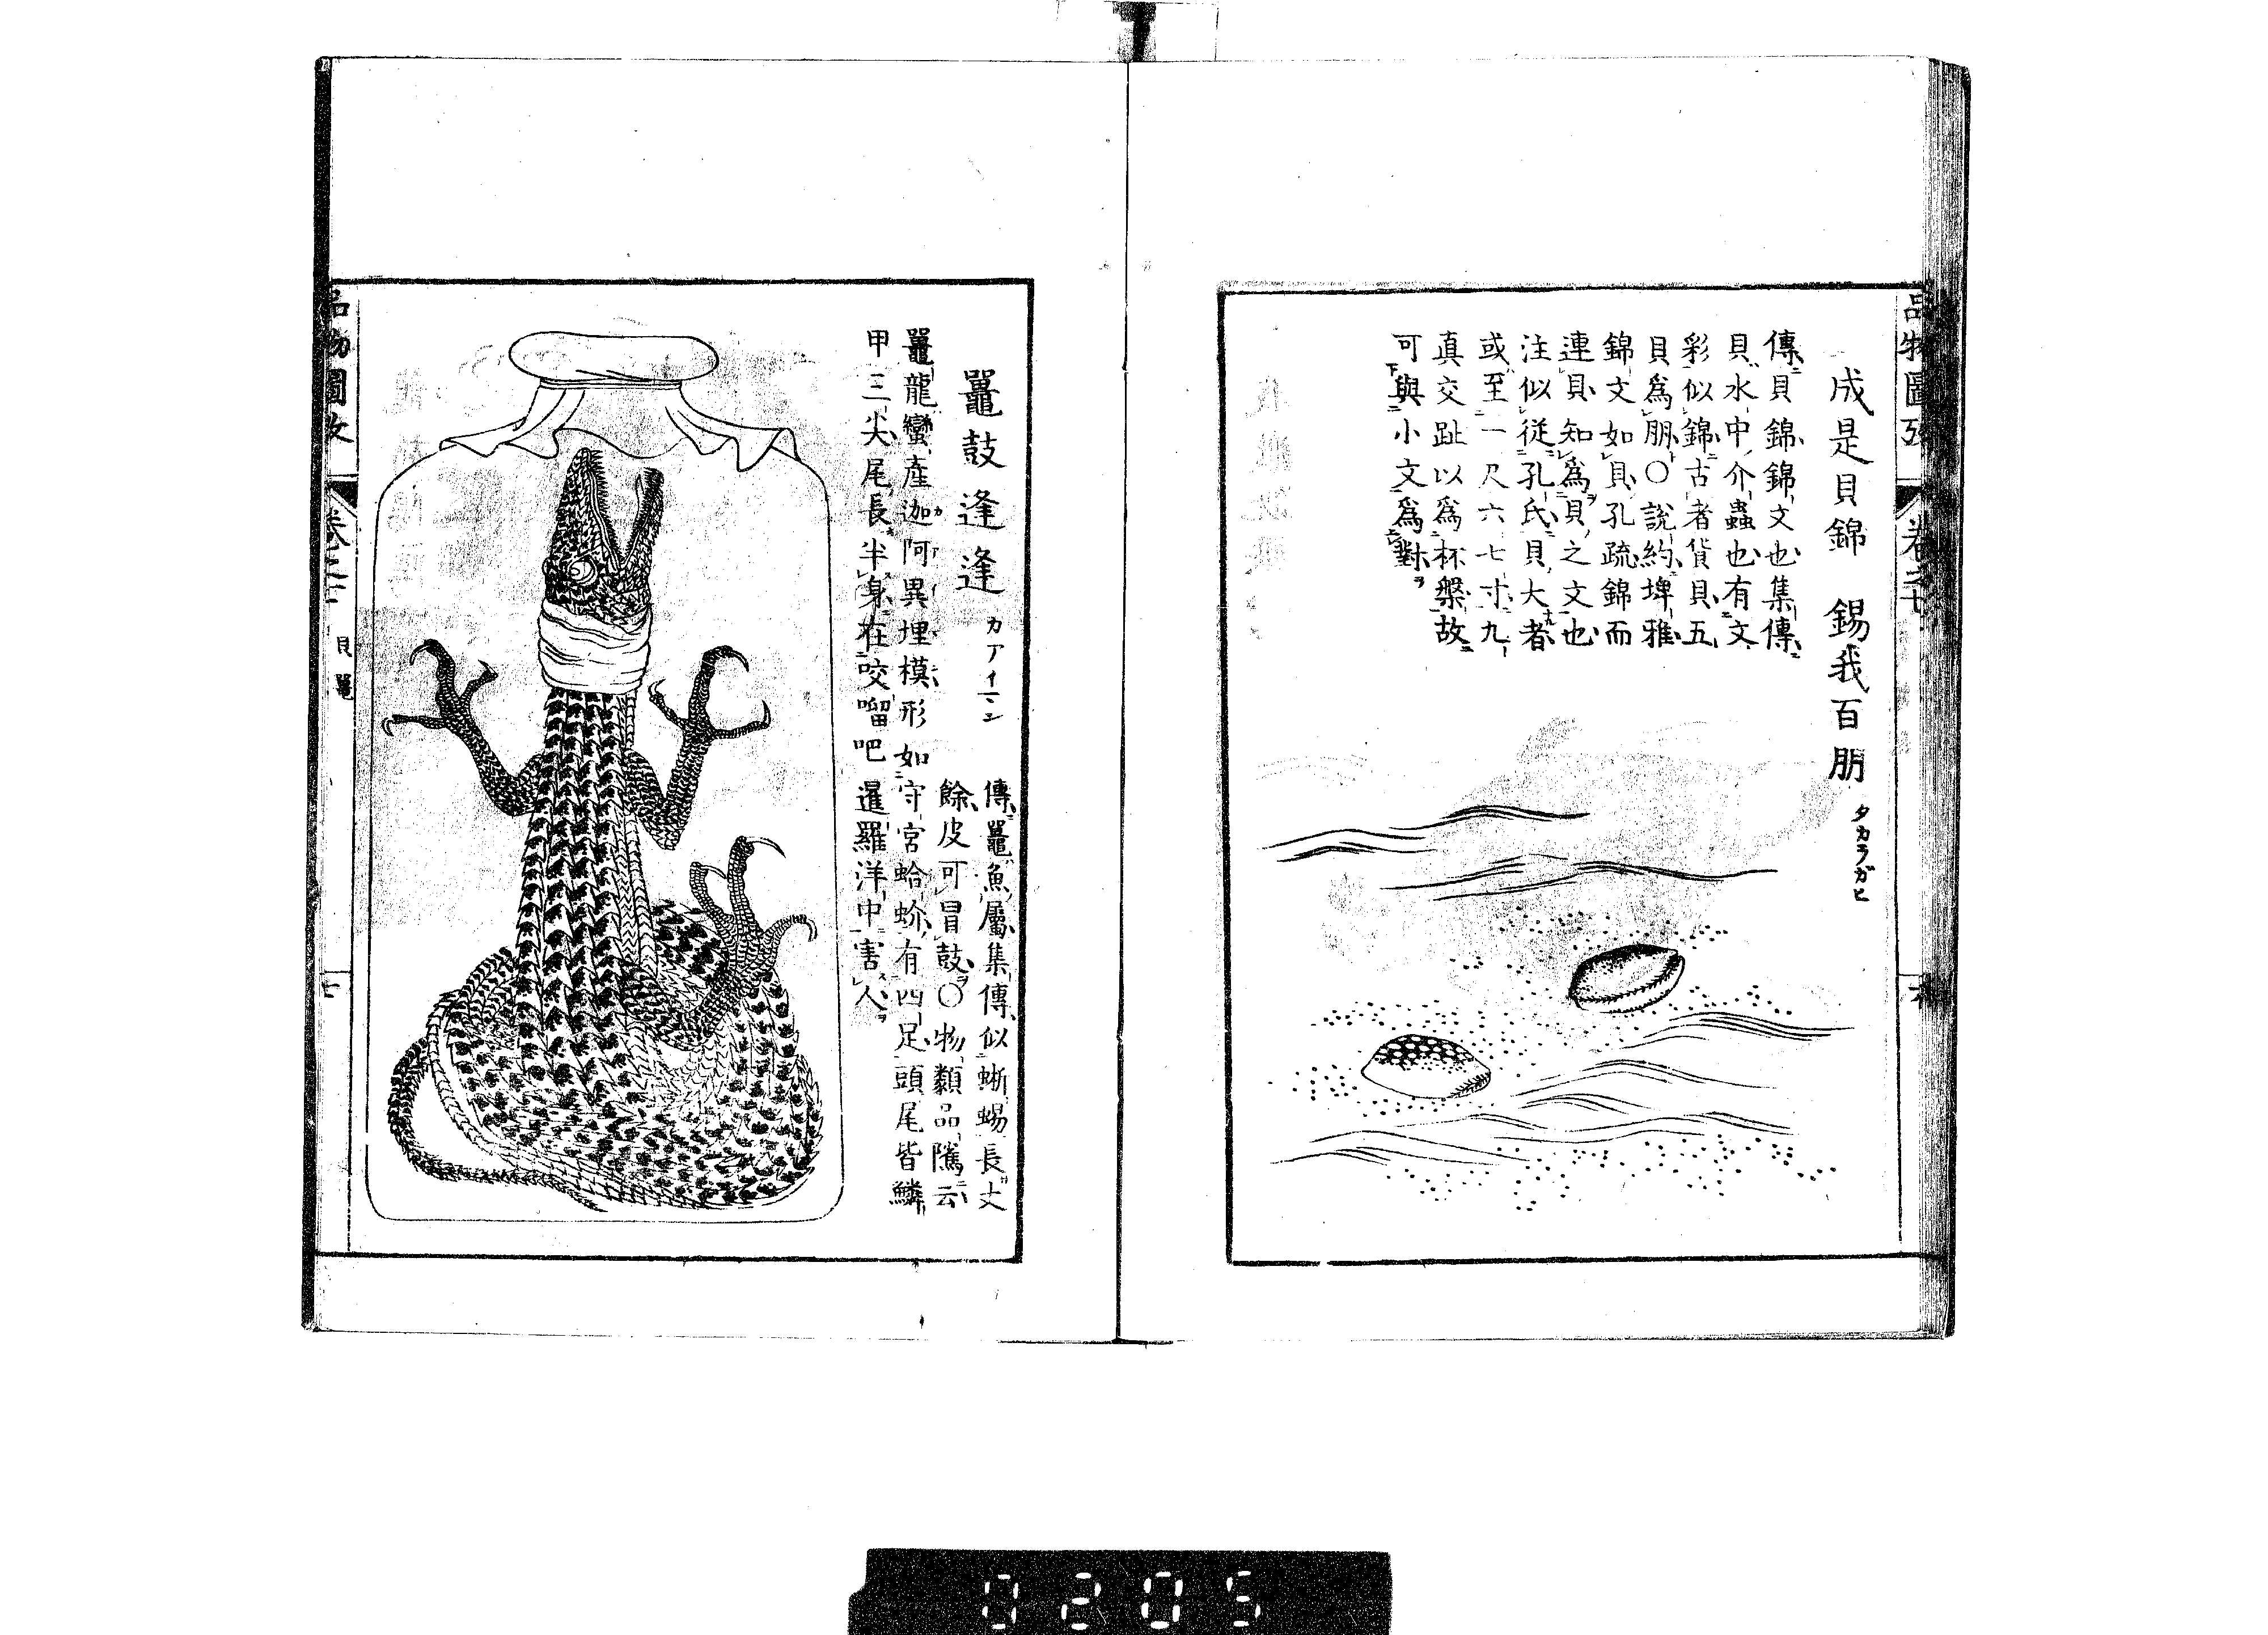 成是貝錦　錫我百朋　タカラガヒ
傳貝錦錦文也集傳
貝水中介蟲也有文
彩似錦古者貨貝五
貝爲朋○説約埤雅
錦文如貝孔疏錦而
連貝知爲貝之文也
注似從孔氏貝大者
或至一尺六七寸九
真交趾以爲杯槃故
可與小文爲對
鼉鼓逢逢　カアイマン
傳鼉魚屬集傳似蜥蜴長丈
餘皮可冒鼓○物類品隲云
鼉龍蠻産迦阿異埋模形如守宮蛤蚧有四足頭尾皆鱗
甲三尖尾長半身在咬𠺕吧暹羅洋中害人
品物圖攷
卷之七
貝鼉
七
0205